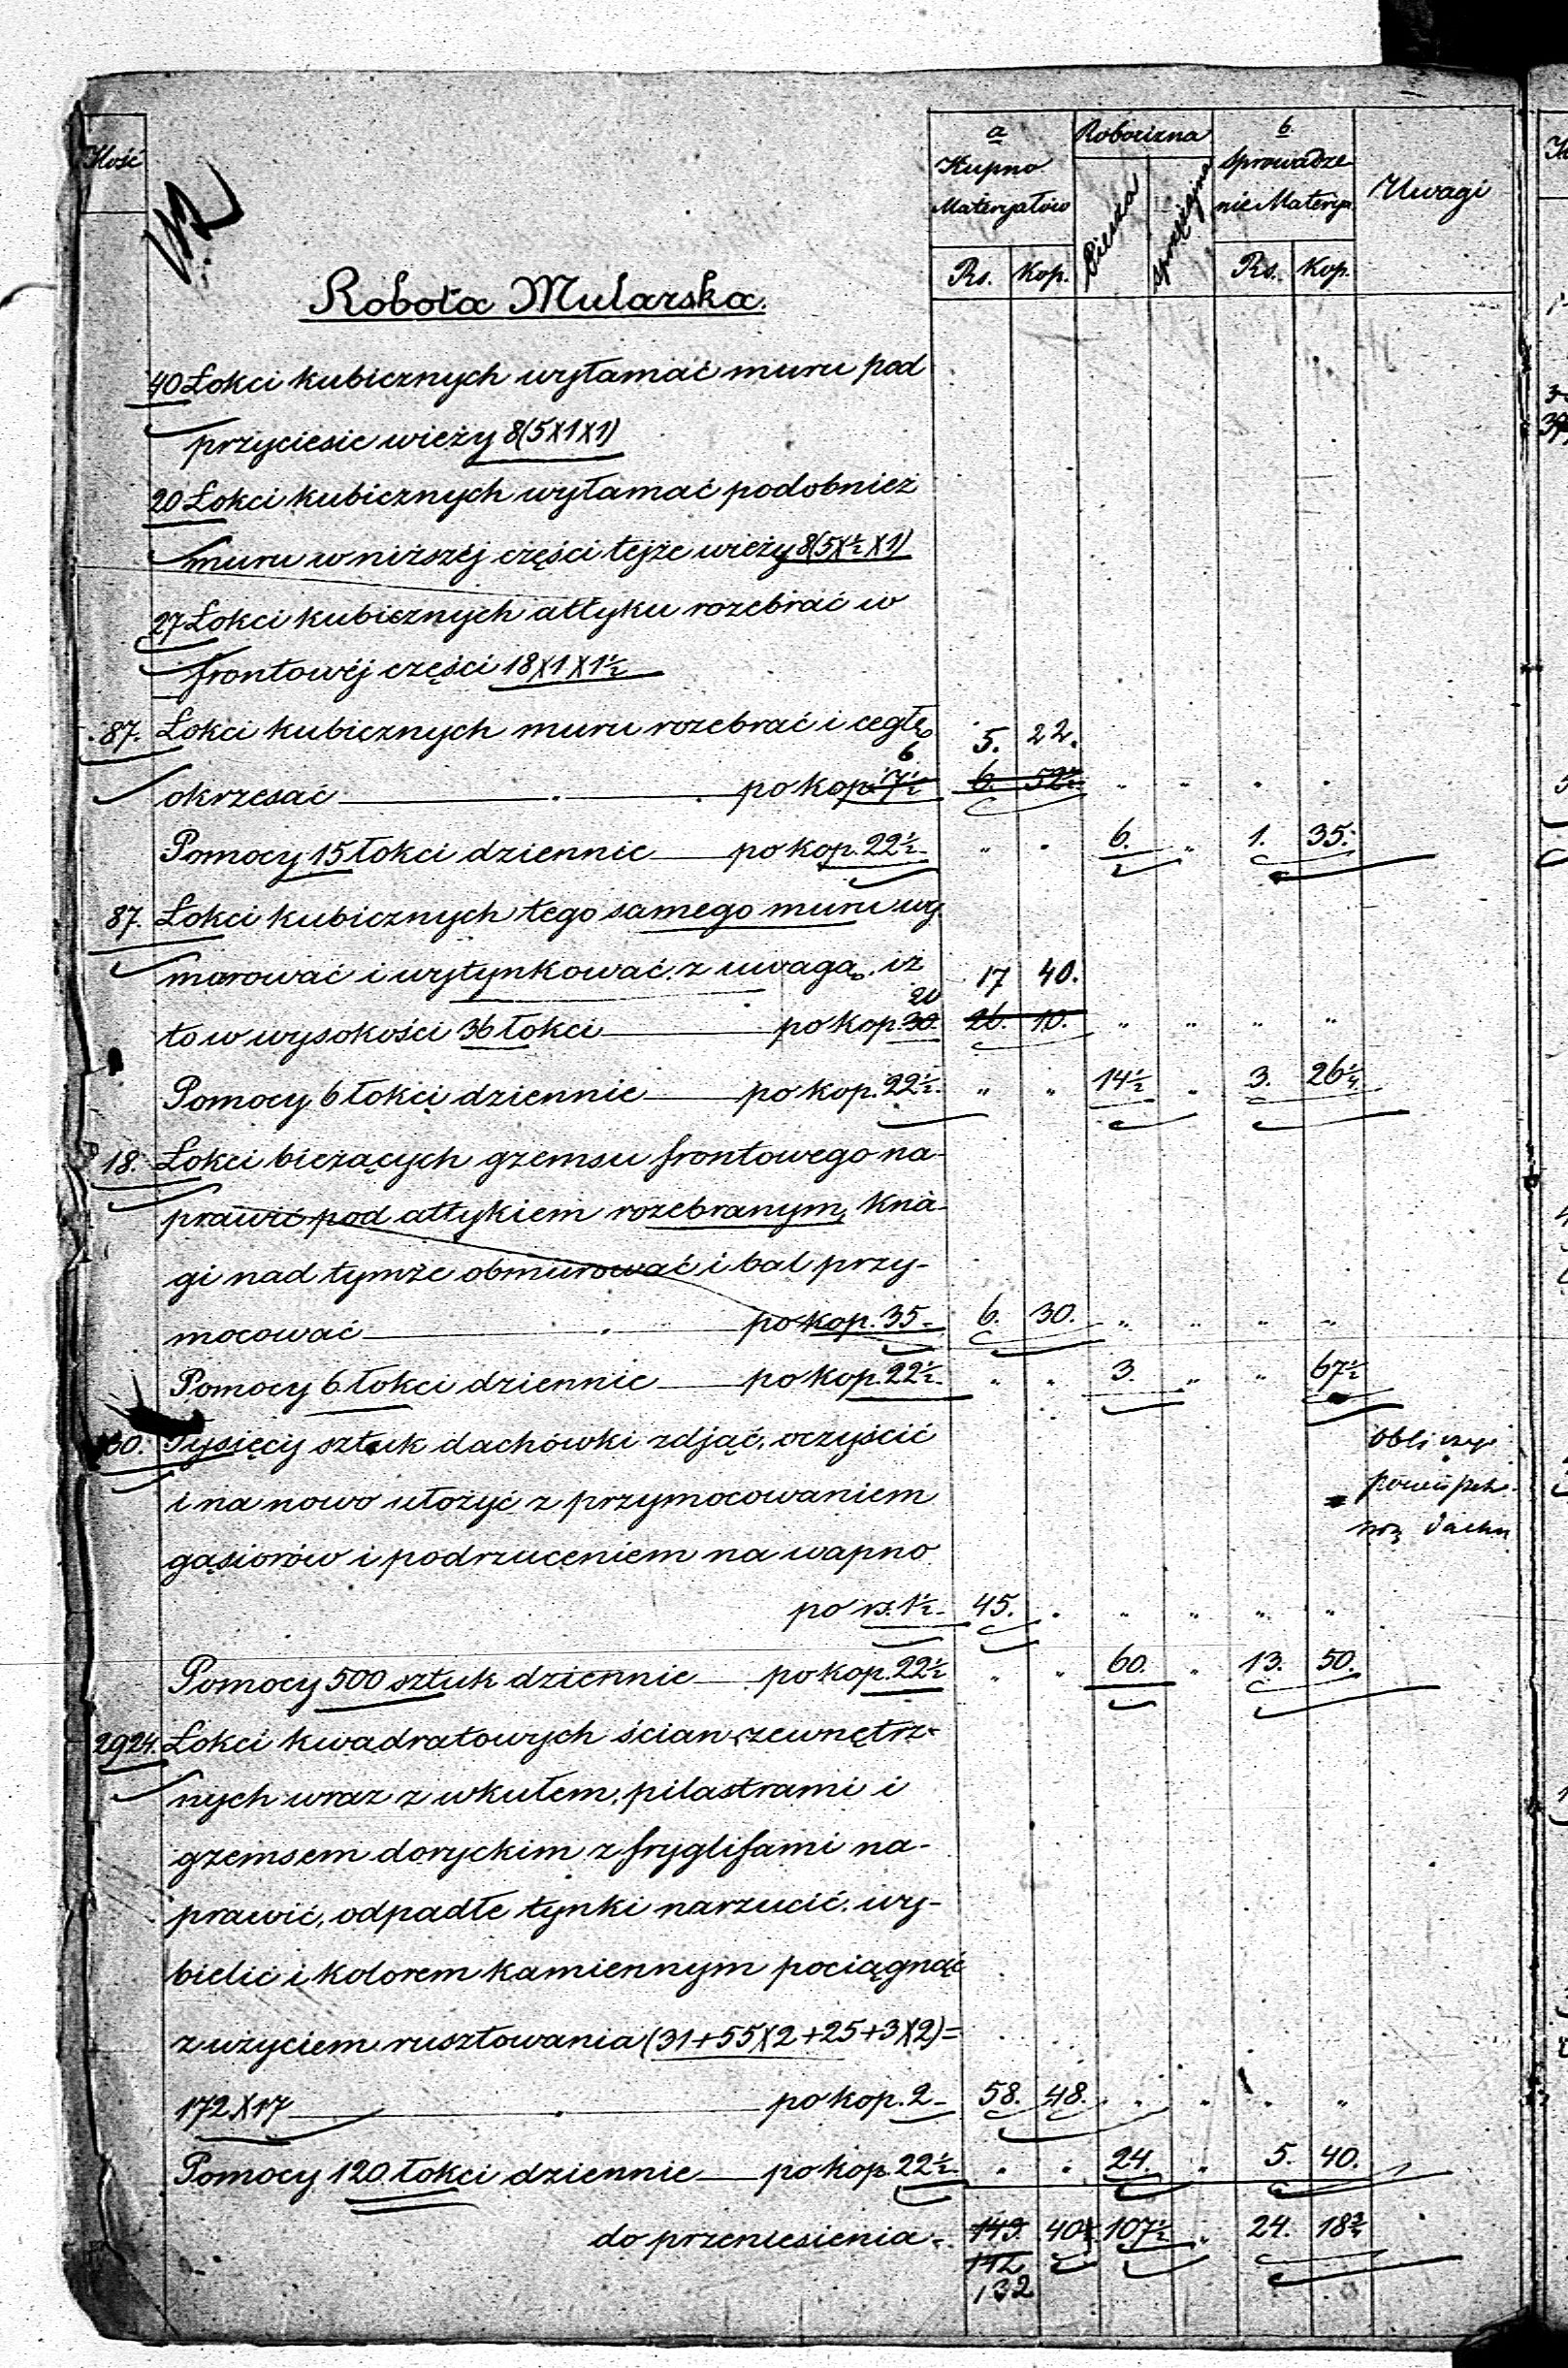 Ilość
a
Kupno
Materyałów
Robocizna
Piesza
sprzężajna
b.
Sprowadze
nie Materya.
Uwagi
Rs. Kop. Rs. Kop.
Robota Mularska.
40 Łokci kubicznych wyłamać muru pod
przyciesie wieży 8(5X1X1)
20 Łokci kubicznych wyłamać podobnież
muru w niższéj części tejże wieży 8(5X½X1)
27 Łokci kubicznych attyku rozebrać w
frontowéj części 18X1X1½
87. Łokci kubicznych muru rozebrać i cegłę 5. 22.
6
okrzesać po kop. 7½ 6. 52½ „ „ „ „
Pomocy 15 łokci dziennie po kop. 22½ „ „ 6. „ 1. 35.
87. Łokci kubicznych tego samego muru wy
marować i wytynkować, z uwagą, iż 17 40.
20
to w wysokości 36 łokci po kop. 30. 26. 10. „ „ „ „
Pomocy 6 łokci dziennie po kop. 22½ „ „ 14½ „ 3. 26¼
18. Łokci bieżących gzemsu frontowego na-
prawić pod attykiem rozebranym, kna-
gi nad tymże obmurować i bal przy-
mocować po kop. 35 6. 30. „ „ „ „
Pomocy 6 łokci dziennie po kop. 22½ „ „ 3. „ „ 67½
30. Tysięcy sztuk dachówki zdjąć, oczyścić
i na nowo ułożyć z przymocowaniem
gąsiorów i podrzuceniem na wapno
po rs. 1½ 45. „ „ „ „ „
Pomocy 500 sztuk dziennie po kop. 22½ „ „ 60. „ 13. 50.
2924. Łokci kwadratowych ścian zewnętrz-
nych wraz z wkutem, pilastrami i
gzemsem doryckim z fryglifami na-
prawić, odpadłe tynki narzucić, wy-
bielić i kolorem kamiennym pociągnąć
z użyciem rusztowania (31+55X2+25+3X2)=
172X17 po kop. 2 58. 48. „ „ „ „
Pomocy 120 łokci dziennie po kop. 22½ „ „ 24. „ 5. 40.
do przeniesienia 143. 40½ 107½ „ 24. 18¾
142
132